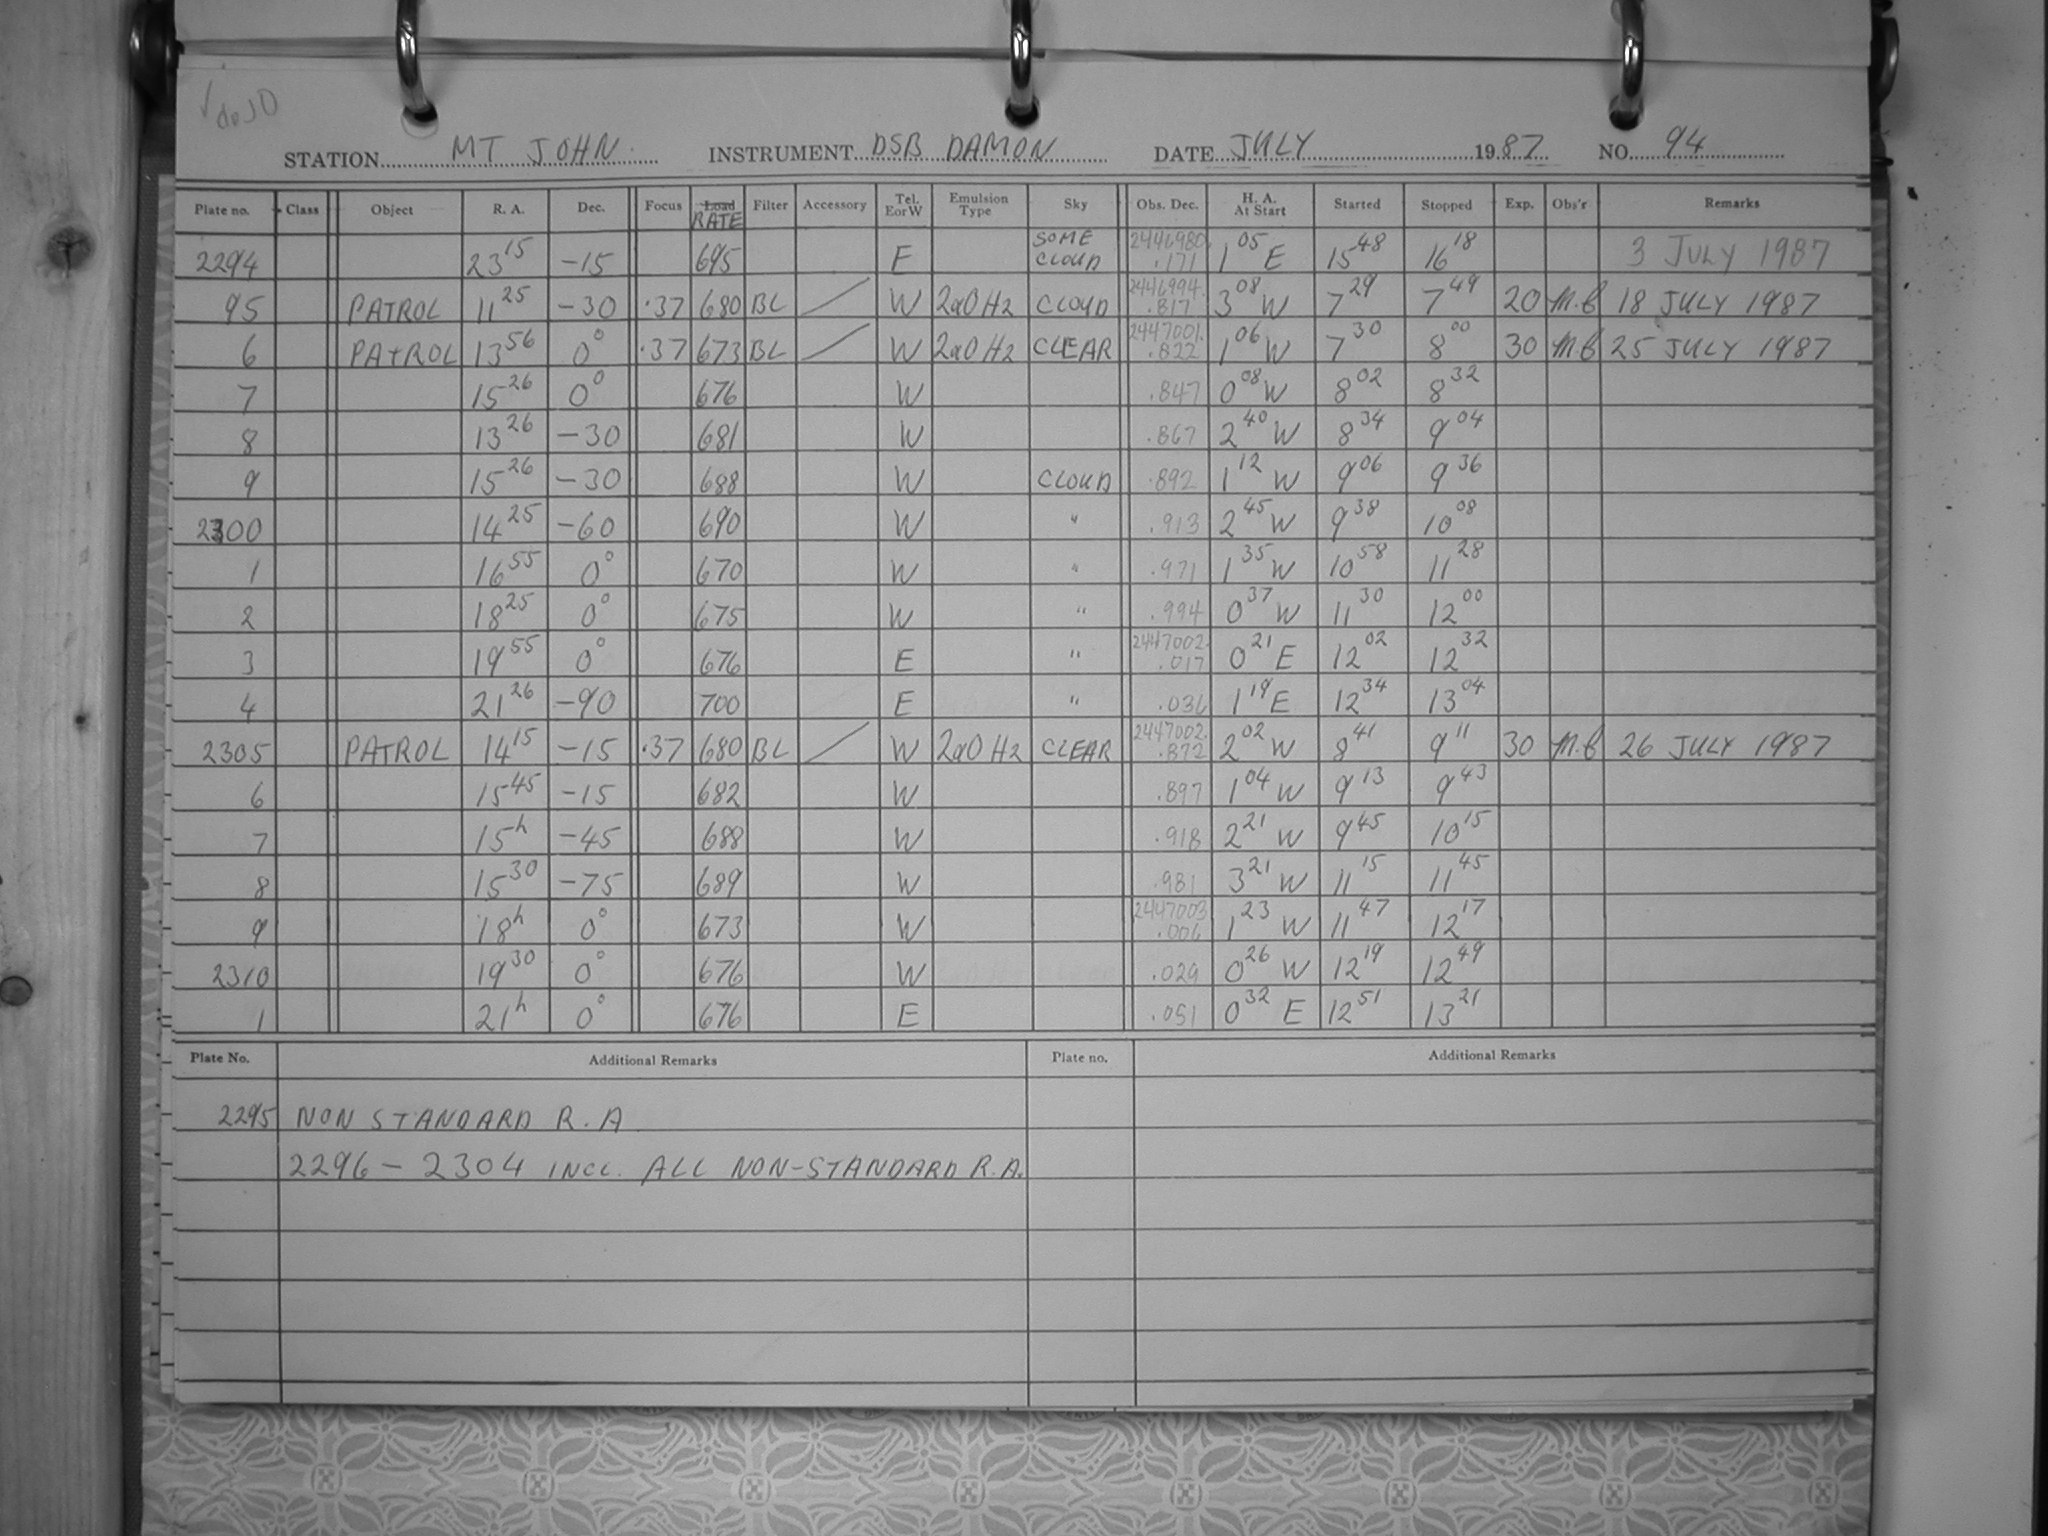 √ do JD
STATION MT JOHN. INSTRUMENT DSB DAMON DATE JULY 1987 NO. 94
Plate no. Class Object R. A. Dec. Focus Load RATE Filter Accessory Tel. E or W Emulsion Type Sky Obs. Dec. H. A. At Start Started Stopped Exp. Obs'r Remarks
2294 23 15 -15 695 E SOME CLOUD 2446980. .171 1 05 E 15 48 16 18 3 JULY 1987
95 PATROL 11 25 -30 .37 680 BL / W 2aO H2 CLOUD 2446994. .817 3 08 W 7 29 7 49 20 M.B 18 JULY 1987
6 PATROL 13 56 0° .37 673 BL / W 2aO H2 CLEAR 2447001. .822 1 06 W 7 30 8 00 30 M.B 25 JULY 1987
7 15 26 0° 676 W .847 0 08 W 8 02 8 32
8 13 26 -30 681 W .867 2 40 W 8 34 9 04
9 15 26 -30 688 W CLOUD .892 1 12 W 9 06 9 36
2300 14 25 -60 690 W " .913 2 45 W 9 38 10 08
1 16 55 0° 670 W " .971 1 35 W 10 58 11 28
2 18 25 0° 675 W " .994 0 37 W 11 30 12 00
3 19 55 0° 676 E " 2447002. .017 0 21 E 12 02 12 32
4 21 26 -90 700 E " .036 1 19 E 12 34 13 04
2305 PATROL 14 15 -15 .37 680 BL / W 2aO H2 CLEAR 2447002. .872 2 02 W 8 41 9 11 30 M.B 26 JULY 1987
6 15 45 -15 682 W .897 1 04 W 9 13 9 43
7 15 h -45 688 W .918 2 21 W 9 45 10 15
8 15 30 -75 689 W .981 3 21 W 11 15 11 45
9 18 h 0° 673 W 2447003 .006 1 23 W 11 47 12 17
2310 19 30 0° 676 W .029 0 26 W 12 19 12 49
1 21 h 0° 676 E .051 0 32 E 12 51 13 21
Plate No. Additional Remarks Plate no. Additional Remarks
2295 NON STANDARD R.A
2296 - 2304 INCL. ALL NON-STANDARD R.A.